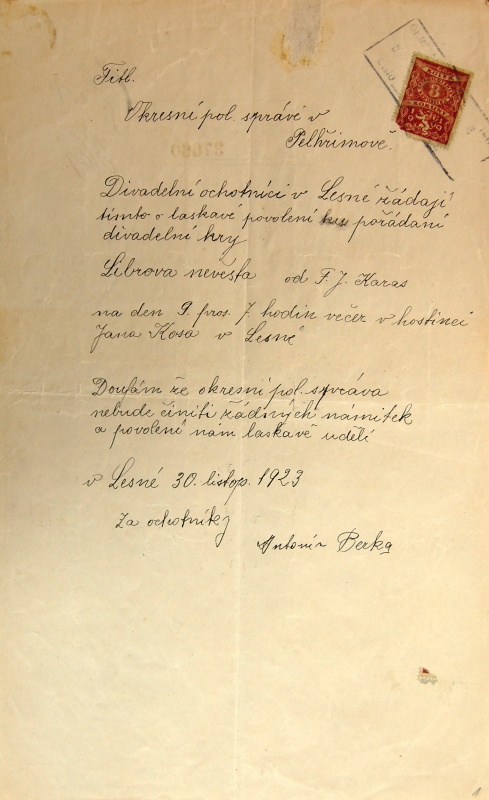 Titl.
Okresní pol. správě v
Pelhřimově.
Divadelní ochotníci v Lesné žádají
tímto o laskavé povolení pořádaní
divadelní hry
Librova nevěsta od F. J. Karas
na den 9. pros. 7. hodin večer v hostinci
Jana Kosa v Lesné
Doufám že okresní pol. správa
nebude činiti žádných námitek
a povolení nám laskavě udělí
v Lesné 30. listop. 1923
Za ochotníky
Antonín Berka
KOLEK
8
1